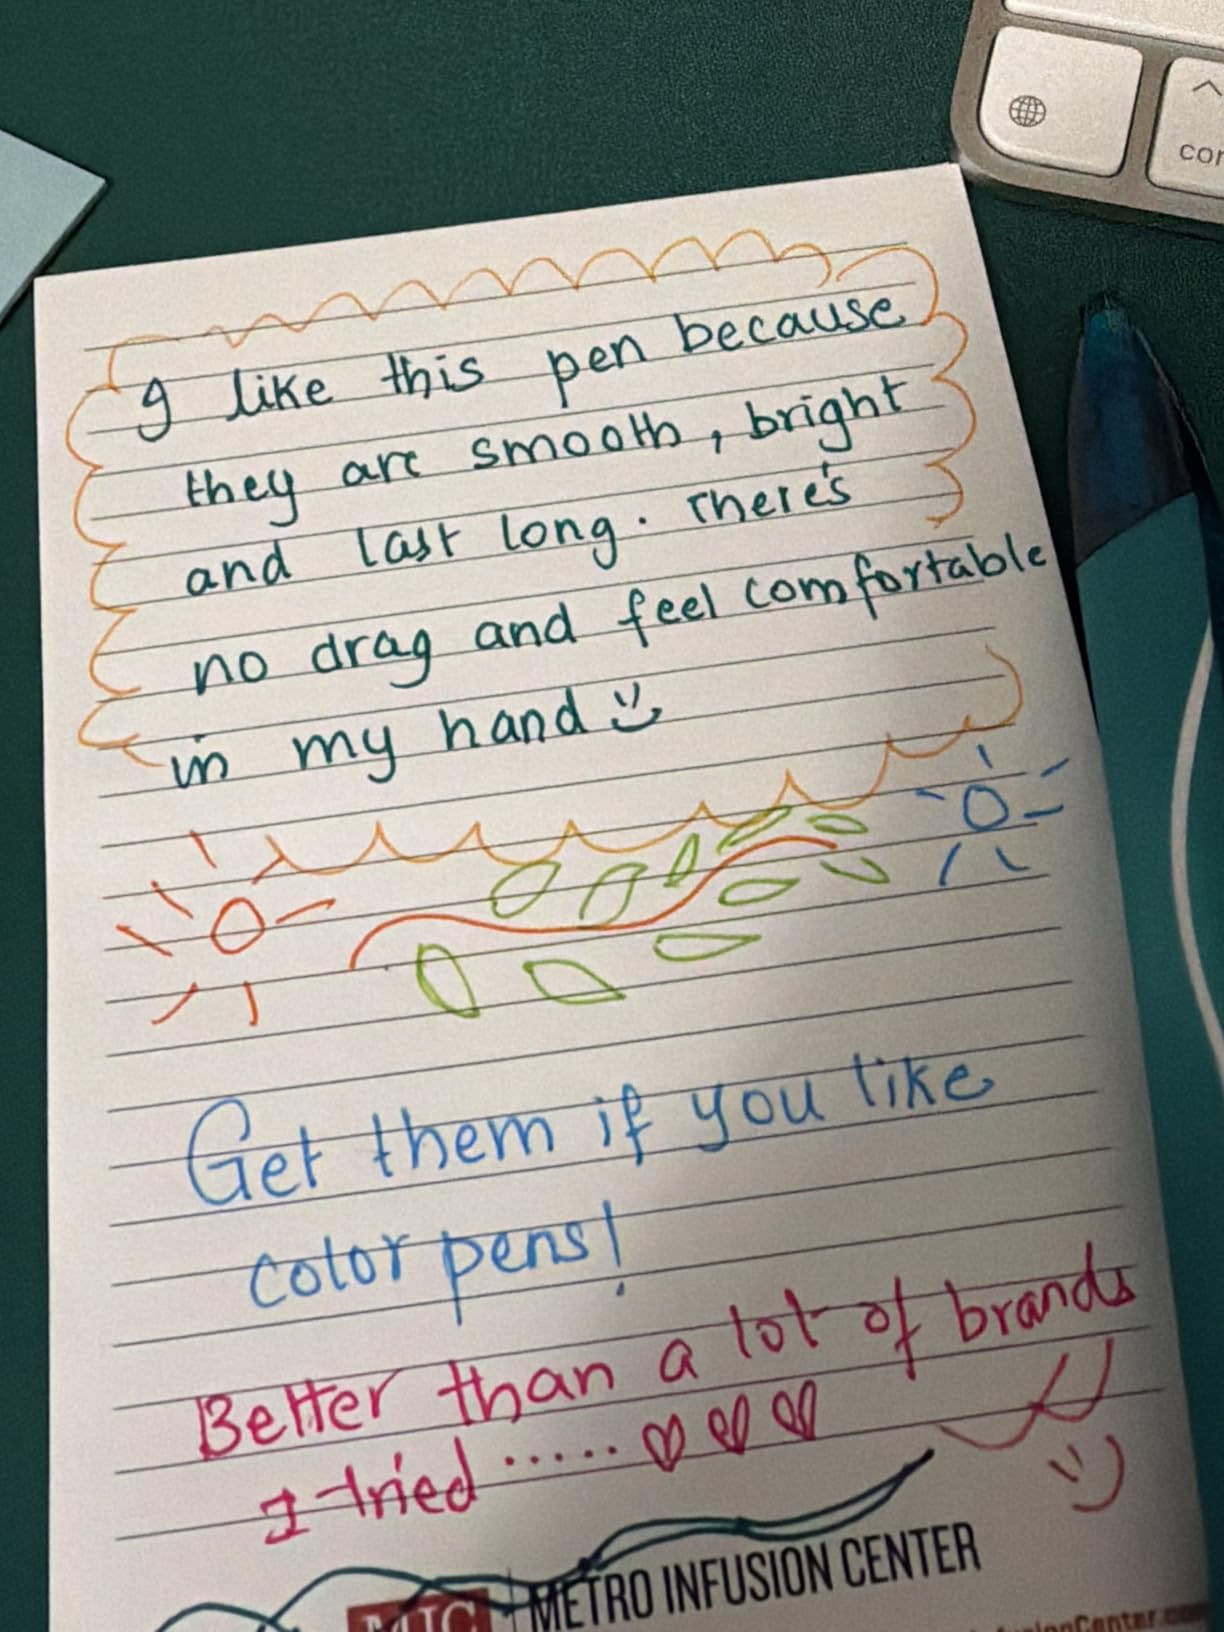 I like this pen because
they are smooth, bright
and last long. There's
no drag and feel comfortable
in my hand
Get them if you like
color pens!
Better than a lot of brands
I tried .....
MIC METRO INFUSION CENTER